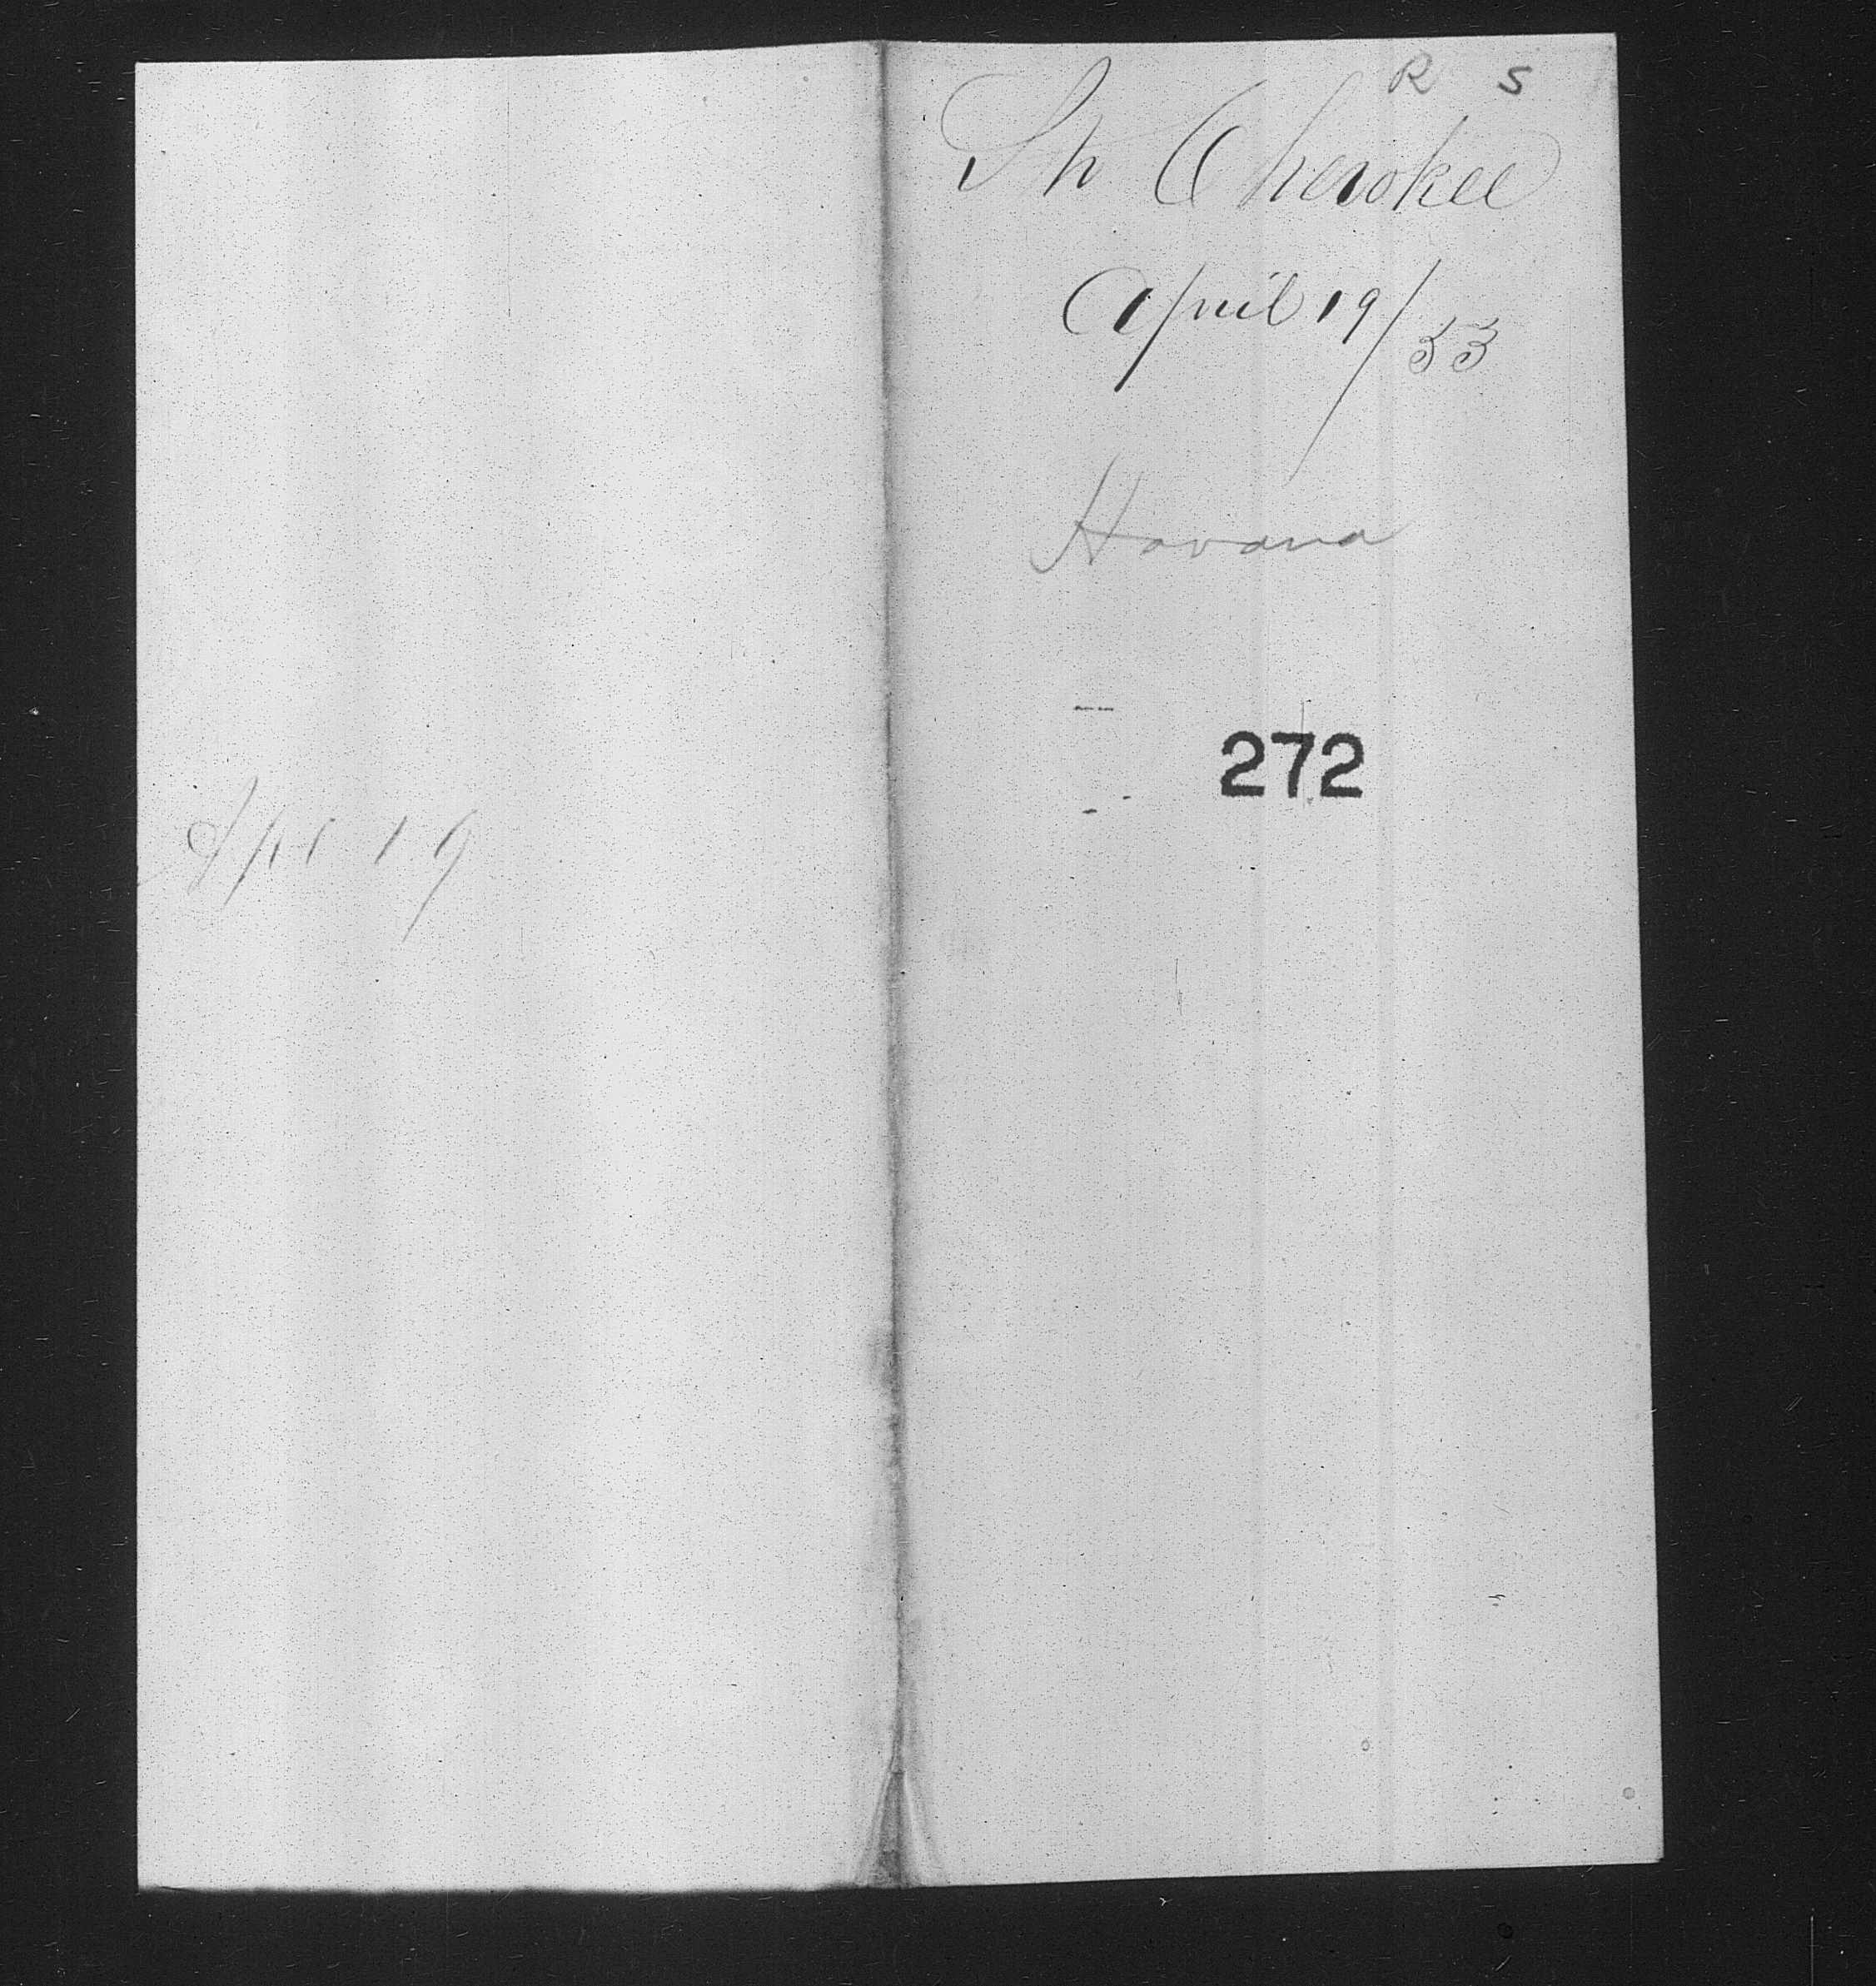 Apr 19
R S
Sh Cherokee
April 19/53
Havana
272